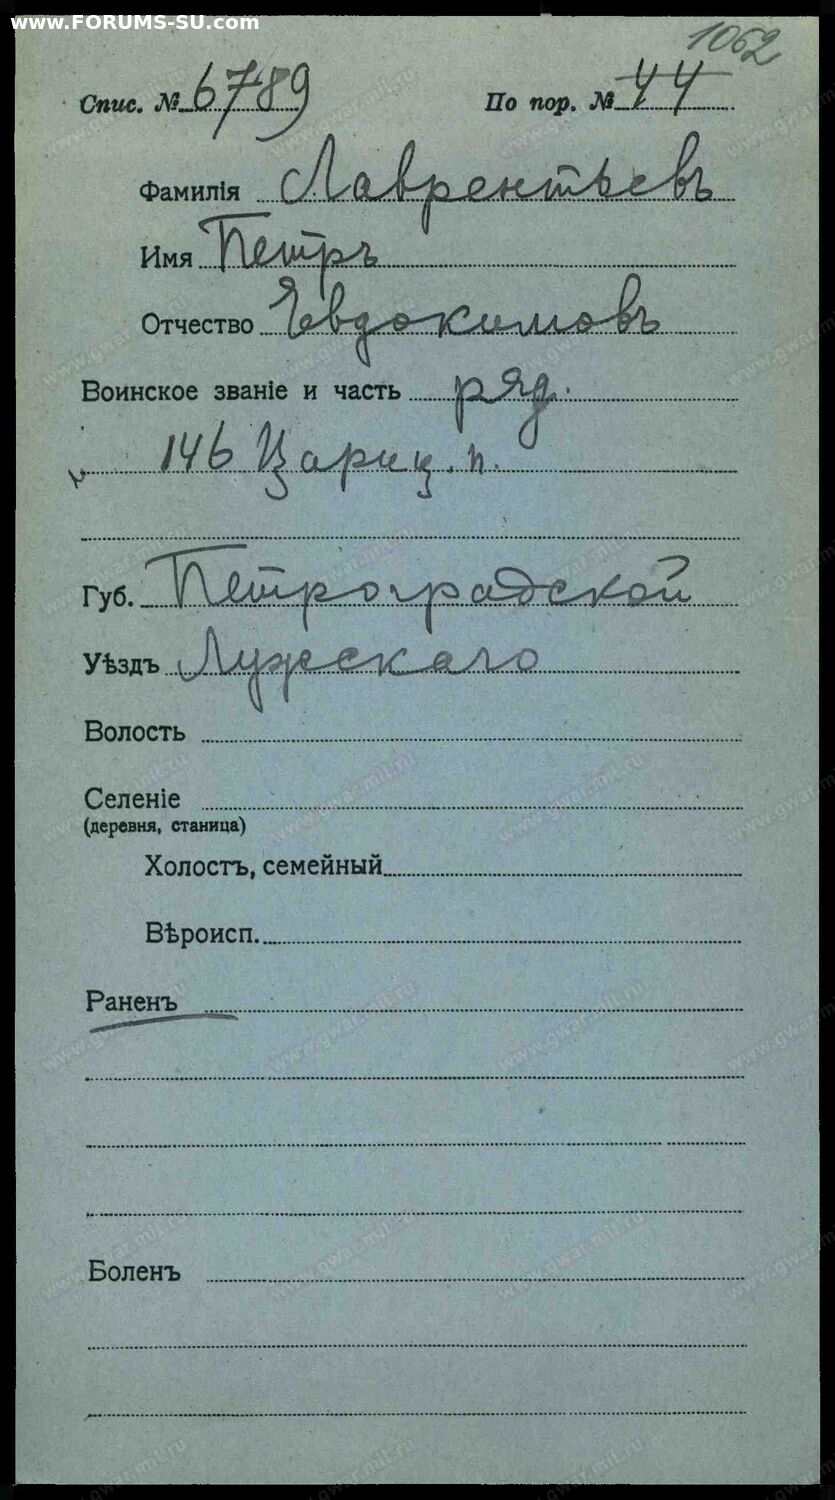 www.FORUMS-SU.com
1062
Спис. № 6789 По пор. № 44
Фамилія Лаврентьевъ
Имя Петръ
Отчество Евдокимовъ
Воинское званіе и часть ряд.
146 Цариц. п.
Губ. Петроградской
Уѣздъ Лужскаго
Волость
Селеніе
(деревня, станица)
Холостъ, семейный
Вѣроисп.
Раненъ
Боленъ
www.gwar.mil.ru